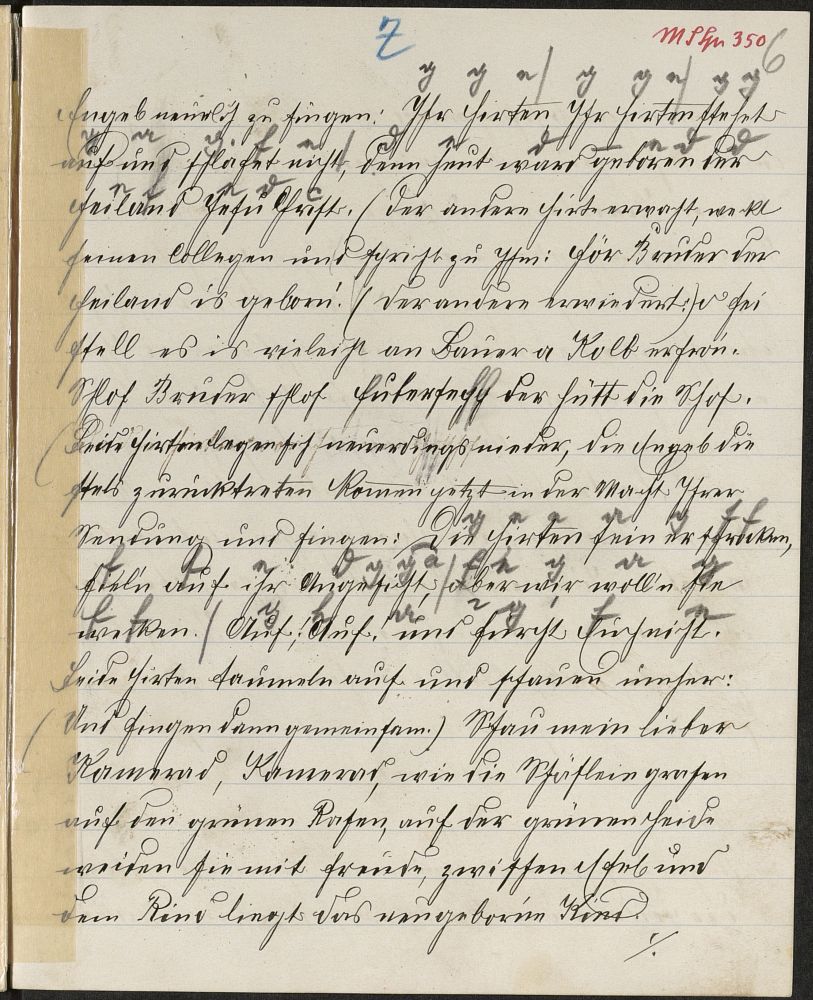 7
MS Gu 350
6
g g e / g g e / g g
Engeb neuerlich zu singen: Ihr Hirten Ihr Hirten stehet
auf und schlafet nicht, denn heut ward geboren der
Heiland Jesu Christ. (der andere Hirte erwacht, wekt
seinen Collegen und spricht zu Ihm: Hör Bruder der
Heiland is geborn. (der andere erwiedert:) o sei
still es is vieleicht an Bauer a Kolb erfrorn.
Schlof Bruder schlof der hütt die Schof.
(Beide Hirten legen sich neuerdings nieder, die Engeb die
stets zurücktreten komen jetzt in der Macht Ihrer
Sendung und singen: Die Hirten sein erschrocken,
falln auf ihr Angesicht, / aber wir woll'n sie
wecken. / Auf! Auf! und fürcht Euch nicht.
Beide Hirten taumeln auf und schauen umher:
(Und singen dann gemeinsam.) Schau mein lieber
Kamerad, Kamerad, wie die Schäflein grasen
auf den grünen Rasen, auf der grünen Heide
weiden sie mit Freude, zwischen Eseb und
dem Rind liegt das neugeborne Kind.
./.